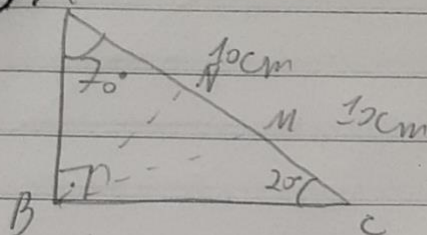 70°
10cm
N
M
10cm
20
B
C